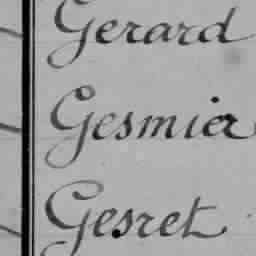 Gerard
Gesmier
Gesret